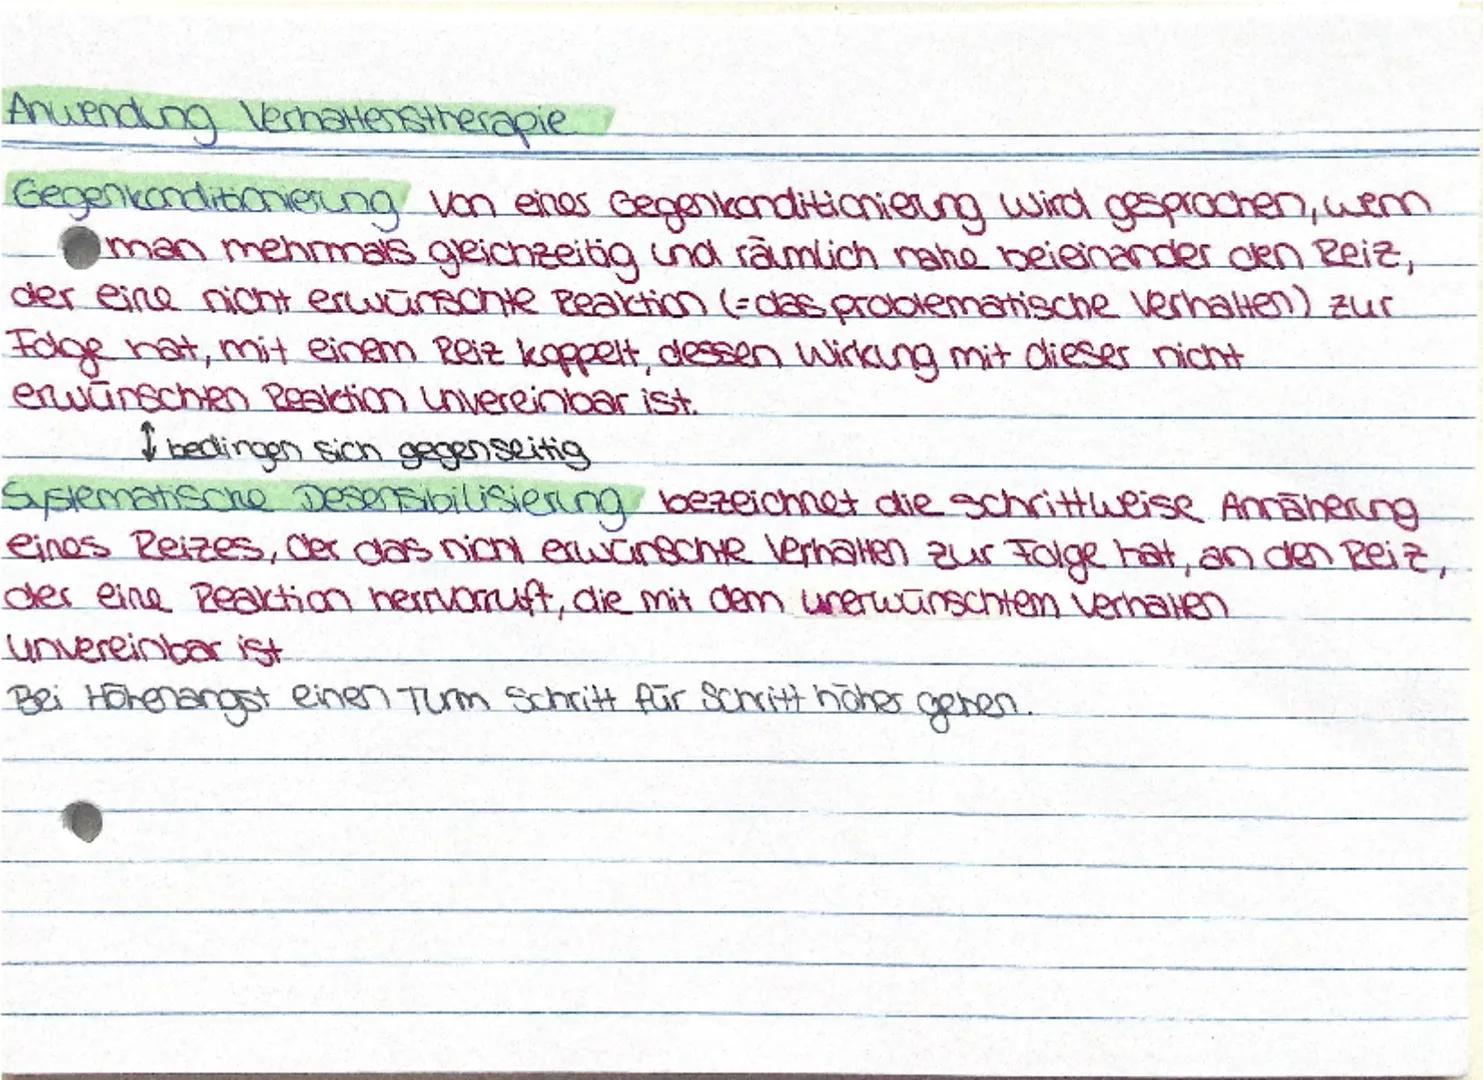 Anwendung Verhaltenstherapie
Gegenkonditionierung Von einer Gegenkonditionierung wird gesprochen, wenn
man mehrmals gleichzeitig und räumlich nahe beieinander den Reiz,
der eine nicht erwünschte Reaktion (=das problematische Verhalten) zur
Folge hat, mit einem Reiz koppelt, dessen Wirkung mit dieser nicht
erwünschen Reaktion unvereinbar ist.
↕ bedingen sich gegenseitig
Systematische Desensibilisierung bezeichnet die schrittweise Annäherung
eines Reizes, der das nicht erwünschte Verhalten zur Folge hat, an den Reiz,
der eine Reaktion herrvorruft, die mit dem unerwünschtem Verhalten
unvereinbar ist
Bei Höhenangst einen Turm Schritt für Schritt höher gehen.